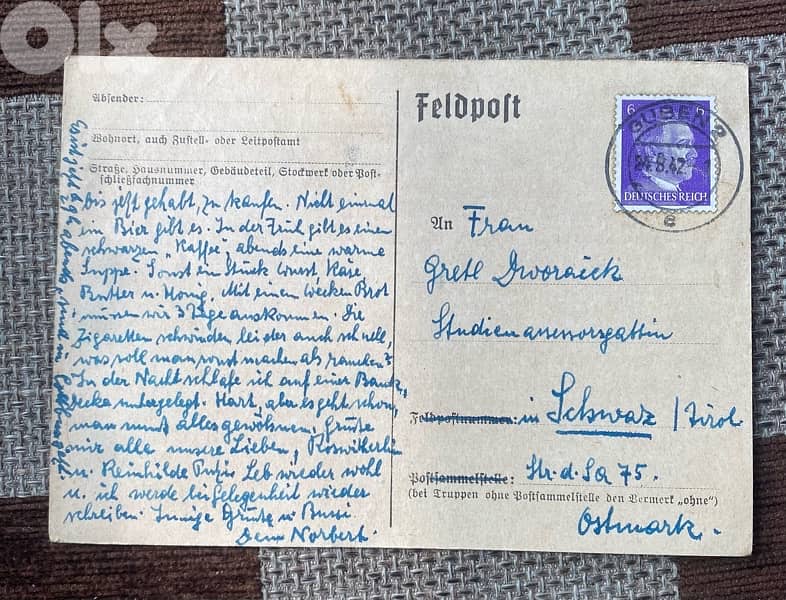 OLX
Absender:
Wohnort, auch Zustell- oder Leitpostamt
Straße, Hausnummer, Gebäudeteil, Stockwerk oder Post-
schließfachnummer
bis jetzt gehabt, zu kaufen. Nicht einmal
ein Bier gibt es. In der Früh gibt es einen
schwarzen "Kaffee", abends eine warme
Suppe. Sonst ein Stück Wurst, Käse
Butter u. Honig. Mit einem Wecken Brot
müssen wir 3 Tage auskommen. Die
Zigaretten schwinden leider auch schnell,
was soll man sonst machen als rauchen?
In der Nacht schlafe ich auf einer Bank,
Decke untergelegt. Hart, aber es geht schon,
man muß alles gewöhnen. Grüße
mir alle unsere Lieben,
u. Reinhilde Leb wieder wohl
u. ich werde bei Gelegenheit wieder
schreiben. Innige Grüße u. Bussi
Dein Norbert.
Feldpost
6 6
DEUTSCHES REICH
GUBEN 2
24.8.42
e
An Frau
Gretl Dworaick
Studienassessorsgattin
Feldpostnummer: in Schwaz / Tirol
Postsammelstelle: Str. d. SA 75.
(bei Truppen ohne Postsammelstelle den Vermerk „ohne")
Ostmark.